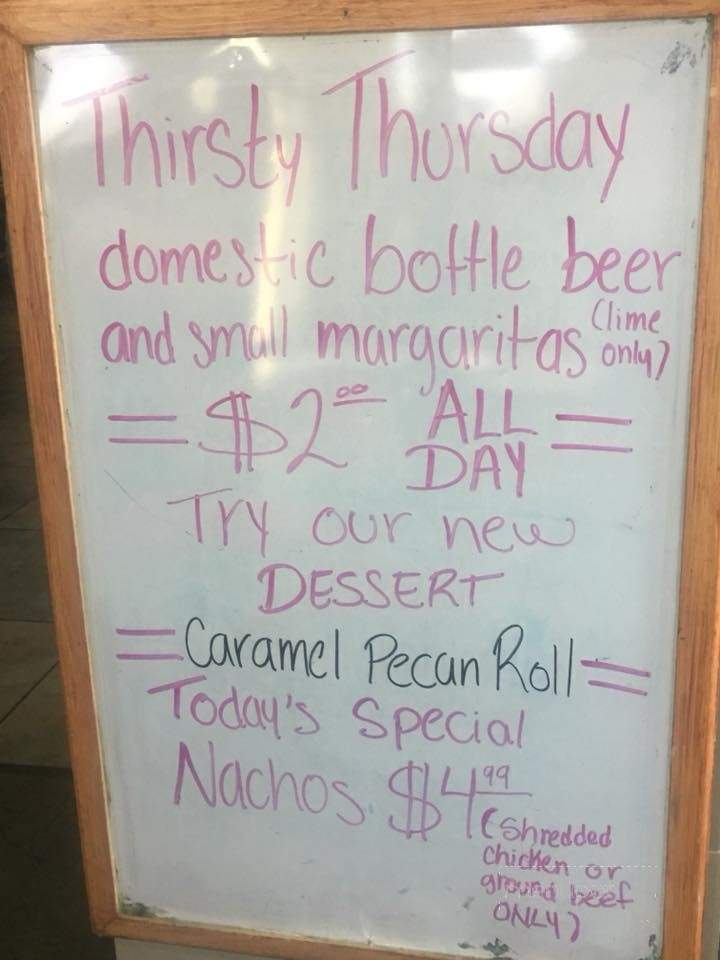 Thirsty Thursday
domestic bottle beer
and small margaritas (lime only)
= $2.00 ALL DAY =
Try our new
DESSERT
= Caramel Pecan Roll =
Today's Special
Nachos $4.99
(Shredded
chicken or
ground beef
ONLY)